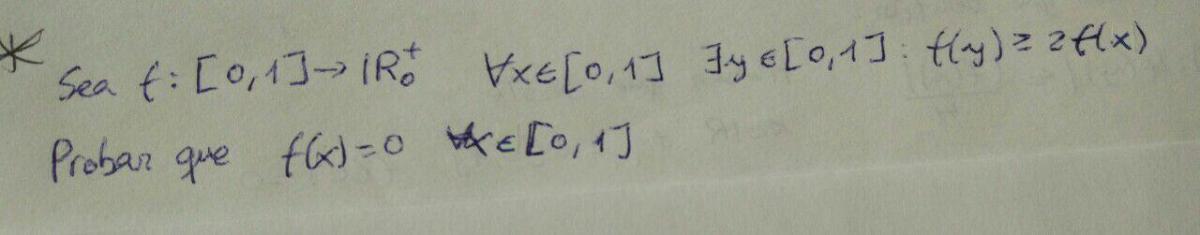 * Sea f: [0,1] → ℝ₀⁺ ∀x∈[0,1] ∃y∈[0,1]: f(y) ≥ 2f(x)
Probar que f(x)=0 ∀x∈[0,1]